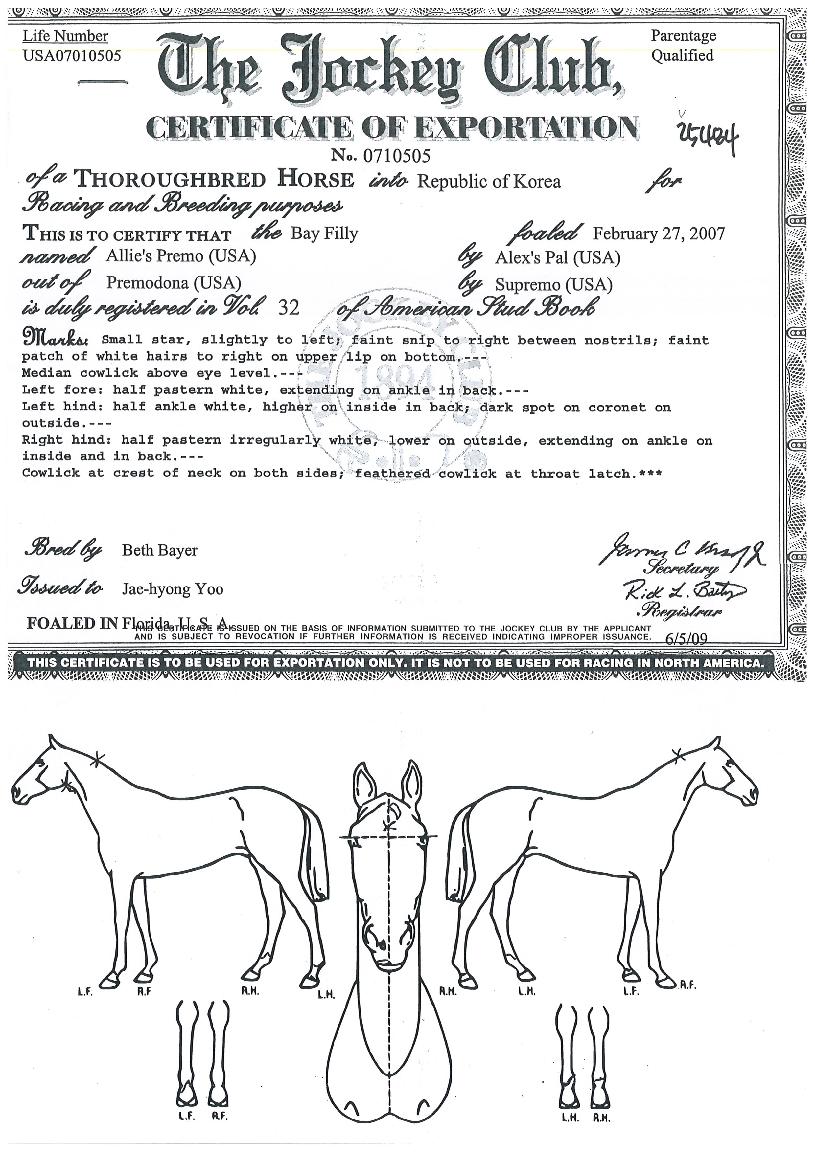 Life Number
USA07010505
Parentage
Qualified
The Jockey Club,
CERTIFICATE OF EXPORTATION
25424
No. 0710505
of a THOROUGHBRED HORSE into Republic of Korea for
Racing and Breeding purposes
THIS IS TO CERTIFY THAT the Bay Filly foaled February 27, 2007
named Allie's Premo (USA) by Alex's Pal (USA)
out of Premodona (USA) by Supremo (USA)
is duly registered in Vol. 32 of American Stud Book
Marks: Small star, slightly to left; faint snip to right between nostrils; faint
patch of white hairs to right on upper lip on bottom.---
Median cowlick above eye level.---
Left fore: half pastern white, extending on ankle in back.---
Left hind: half ankle white, higher on inside in back; dark spot on coronet on
outside.---
Right hind: half pastern irregularly white, lower on outside, extending on ankle on
inside and in back.---
Cowlick at crest of neck on both sides; feathered cowlick at throat latch.***
1894
Bred by Beth Bayer
Secretary
Issued to Jae-hyong Yoo
Registrar
FOALED IN Florida, U. S. A.
THIS CERTIFICATE IS ISSUED ON THE BASIS OF INFORMATION SUBMITTED TO THE JOCKEY CLUB BY THE APPLICANT
AND IS SUBJECT TO REVOCATION IF FURTHER INFORMATION IS RECEIVED INDICATING IMPROPER ISSUANCE.
6/5/09
THIS CERTIFICATE IS TO BE USED FOR EXPORTATION ONLY. IT IS NOT TO BE USED FOR RACING IN NORTH AMERICA.
L.F. R.F R.H. L.H. R.H. L.H. L.F. R.F.
L.F. R.F. L.H. R.H.